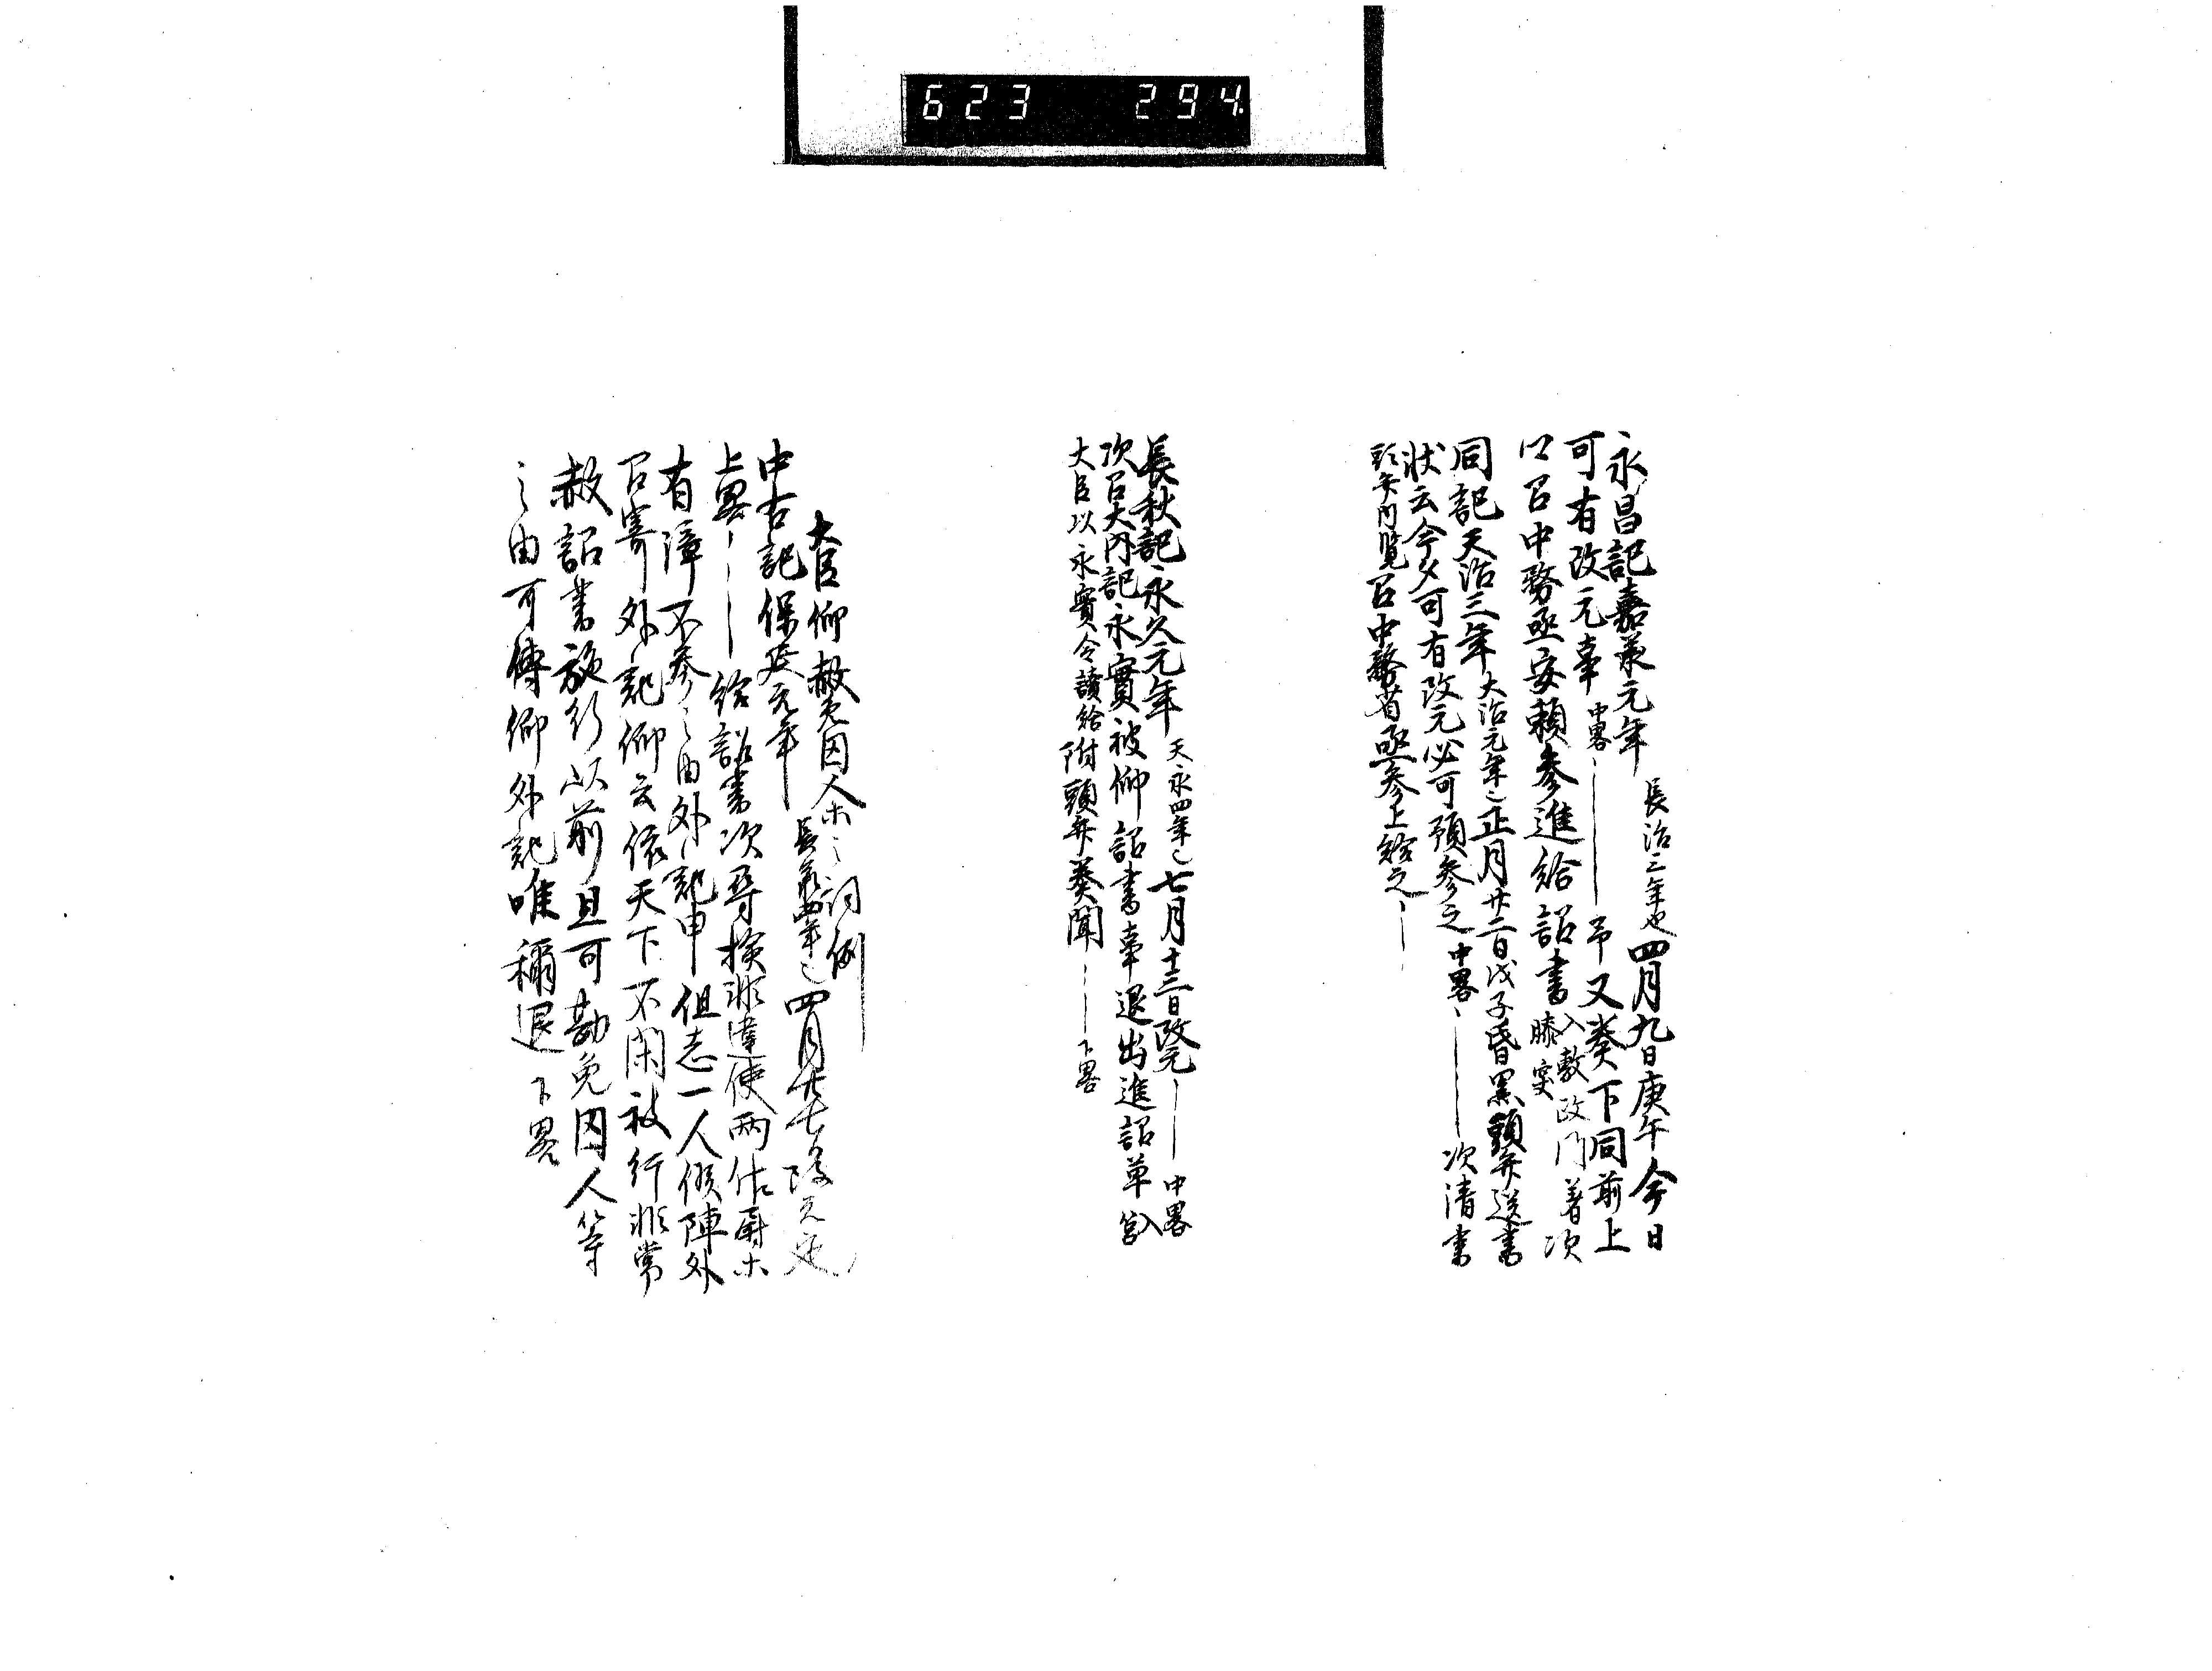 623 294
永昌記嘉承元年長治三年也四月九日庚午今日
可有改元事中畧――帋又奏下同前上
口召中務丞安頼参進給詔書入敷政門着
膝突次
同記天治三年大治元年也正月廿二日戊子昏黒頭弁送書
状云今夕可有改元必可預参之中畧――次清書
頭弁内覧召中務省丞参上給之――
長秋記永久元年天永四年也七月十三日改元――中畧
次召大内記永實被仰詔書事退出進詔草入筥
大臣以永實令讀給附頭弁奏聞――下畧
大臣仰赦免囚人ホ之詞例
中右記保延元年長承四年也四月廿七日改元定
上畧――給詔書次尋検非違使両佐尉ホ
有障不参之由外記申但志一人候陣外
召寄外記仰云依天下不閑被行非常
赦詔書施行以前且可勘免囚人等
之由可傳仰外記唯稱退下畧